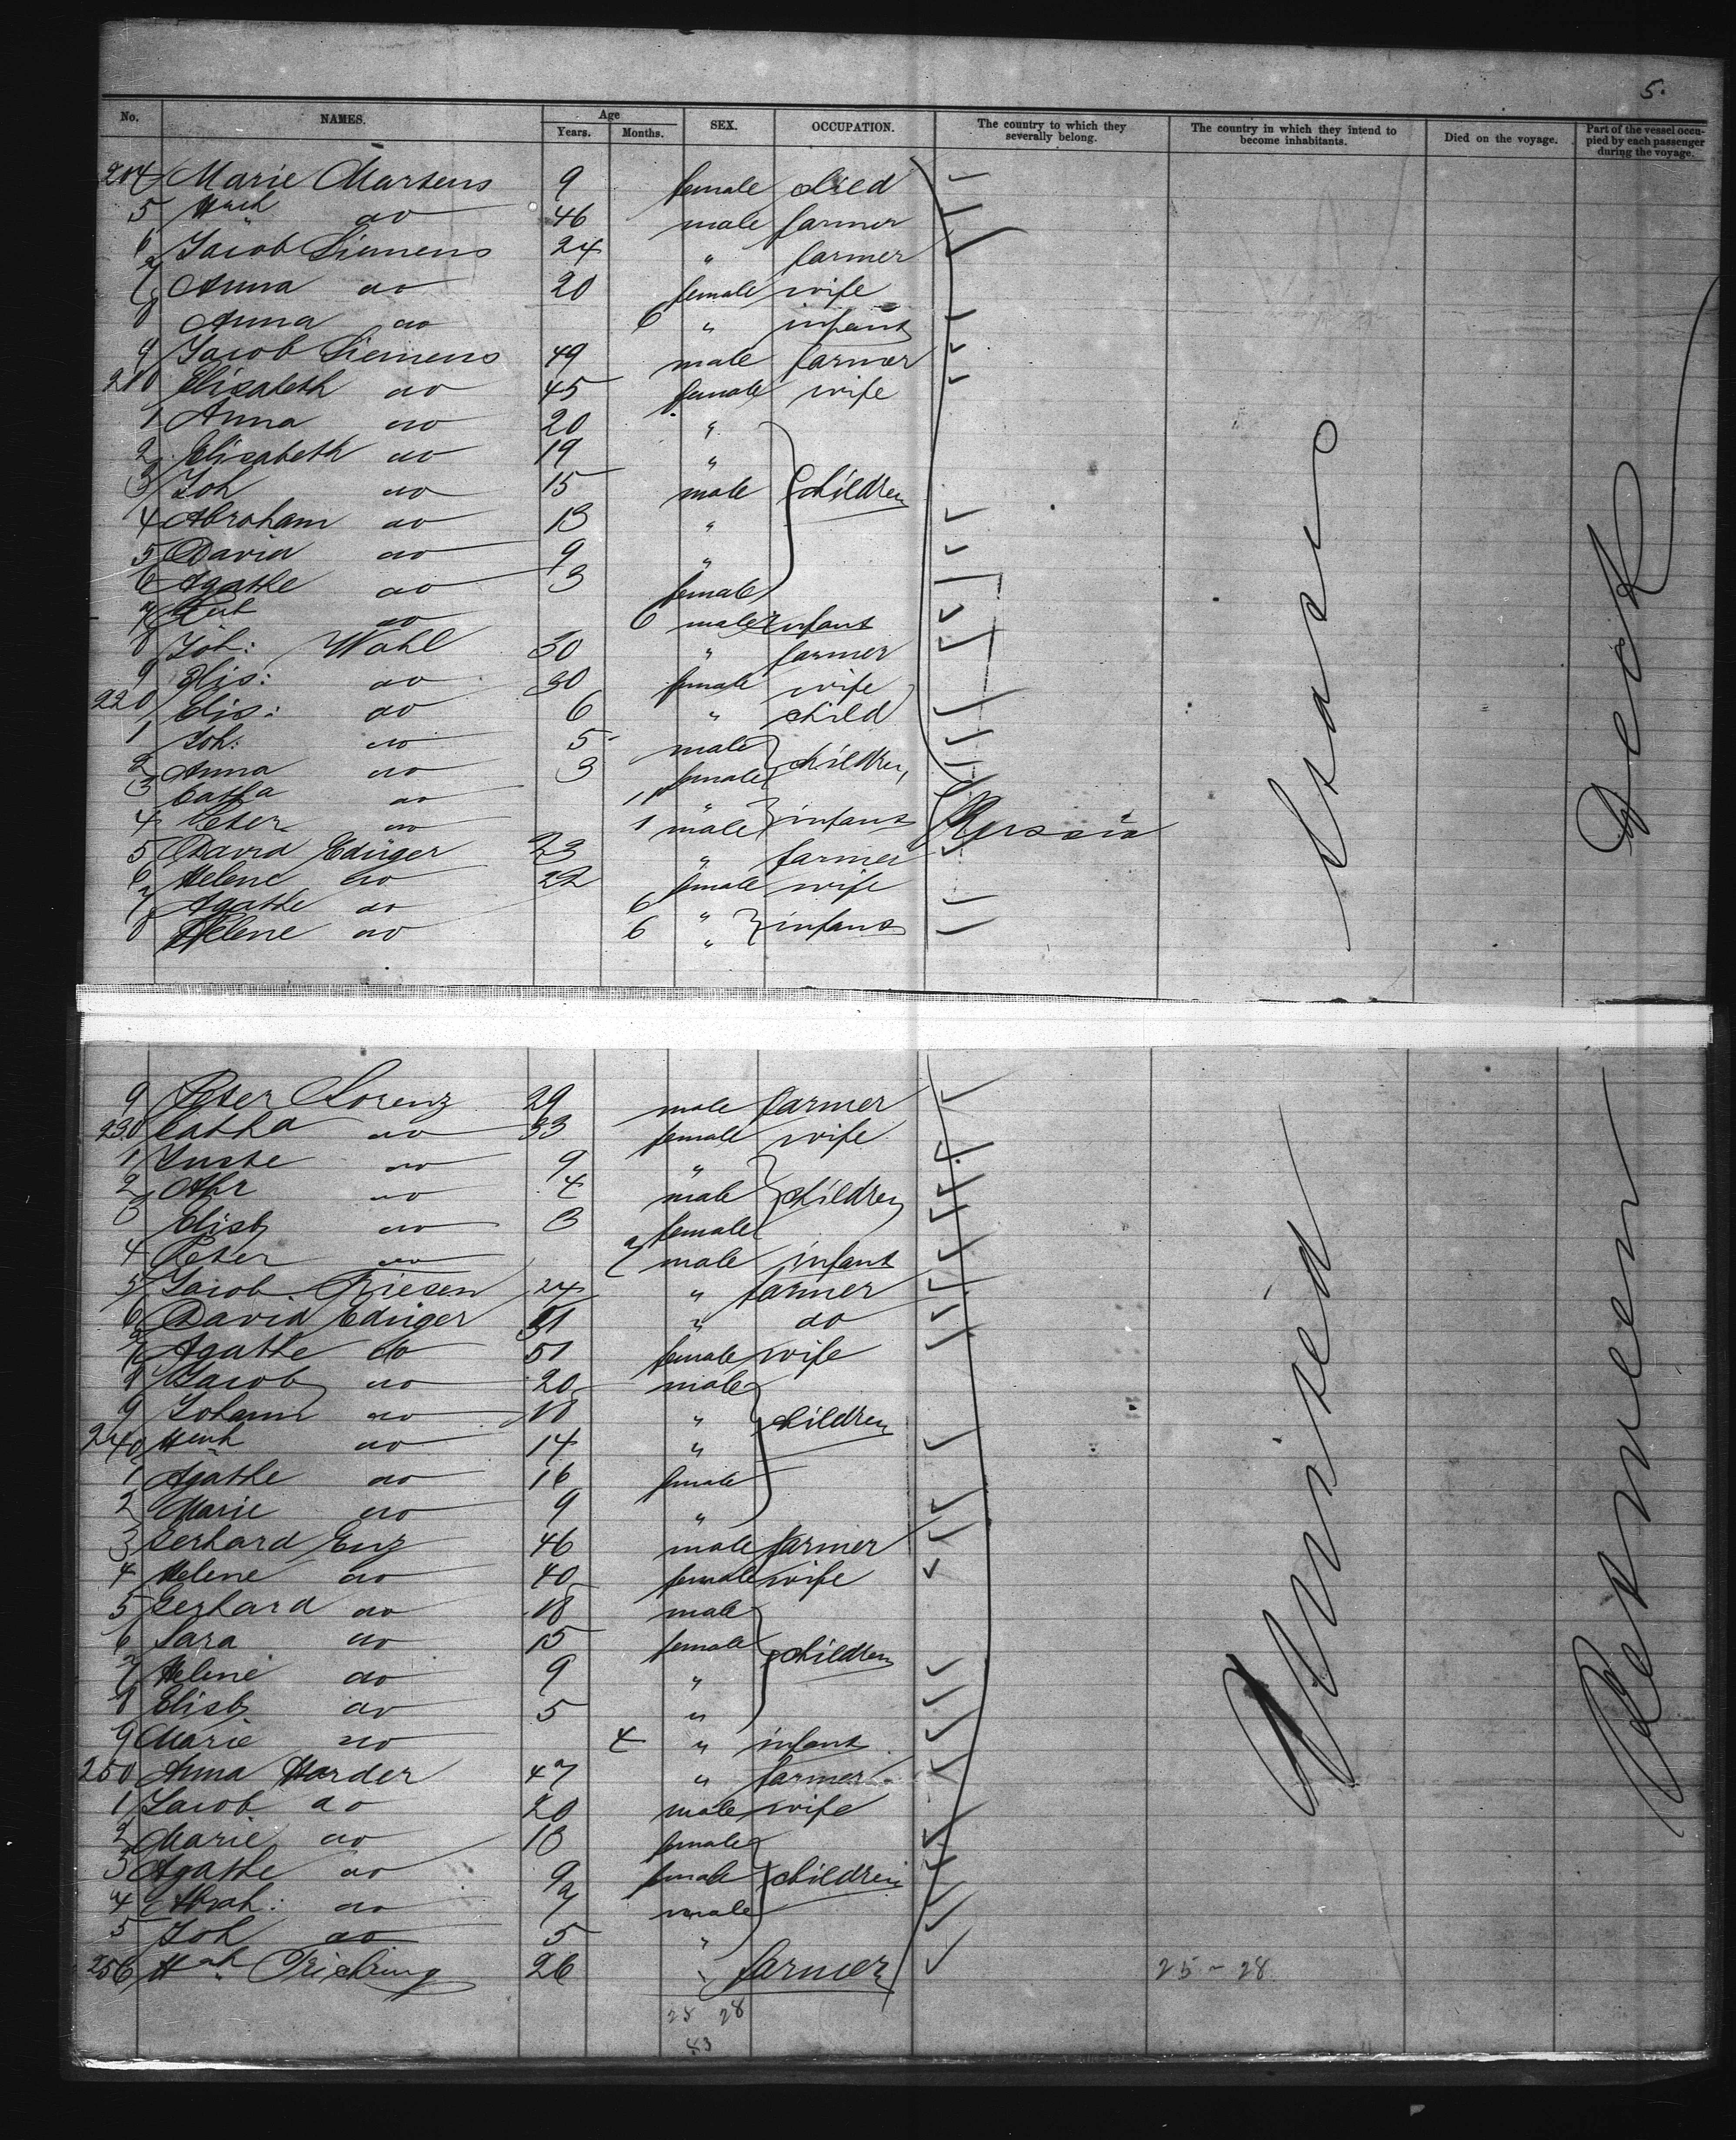 5.
No. NAMES. Age Years. Months. SEX. OCCUPATION. The country to which they severally belong. The country in which they intend to become inhabitants. Died on the voyage. Part of the vessel occupied by each passenger during the voyage.
204 Marie Martens 9 female child
5 do 46 male farmer
6 Jacob Siemens 24 " farmer
7 Anna do 20 female wife
8 Anna do 6 " infant
9 Jacob Siemens 49 male farmer
210 Elisabeth do 45 female wife
1 Anna do 20 "
2 Elisabeth do 19 "
3 Joh do 15 male children
4 Abraham do 13 "
5 David do 9 "
6 Agathe do 3 female
7 do 6 male infant
8 Joh: Wahl 30 " farmer
9 Elis: do 30 female wife
220 Elis: do 6 " child
1 Joh: do 5 male children
2 Anna do 3 female
3 Catha do 11 " infants
4 Peter do 1 male Russia
5 David Ediger 23 " farmer
6 Helene do 22 female wife
7 Agathe do 6 " infants
8 Helene do 6 "
9 Peter Lorenz 29 male farmer
230 Catha do 33 female wife
1 do 9 "
2 Abr do 4 male children
3 Elisb do 3 female
4 Peter do 7 male infant
5 Jacob Friesen 24 " farmer
6 David Ediger 51 " do
7 Agathe do 51 female wife
8 Jacob do 20 male
9 Johann do 18 " children
240 Henh do 14 "
1 Agathe do 16 female
2 Marie do 9 "
3 Gerhard Enz 46 male farmer
4 Helene do 40 female wife
5 Gerhard do 18 male
6 Sara do 15 female children
7 Helene do 9 "
8 Elisb do 5 "
9 Marie do 4 " infant
250 Anna Harder 47 " farmer
1 Jacob do 20 male wife
2 Marie do 18 female
3 Agathe do 9 female children
4 Abrah: do 7 male
5 Joh do 5 "
256 26 " farmer
United States
Between Deck
25 28
25 - 28
53